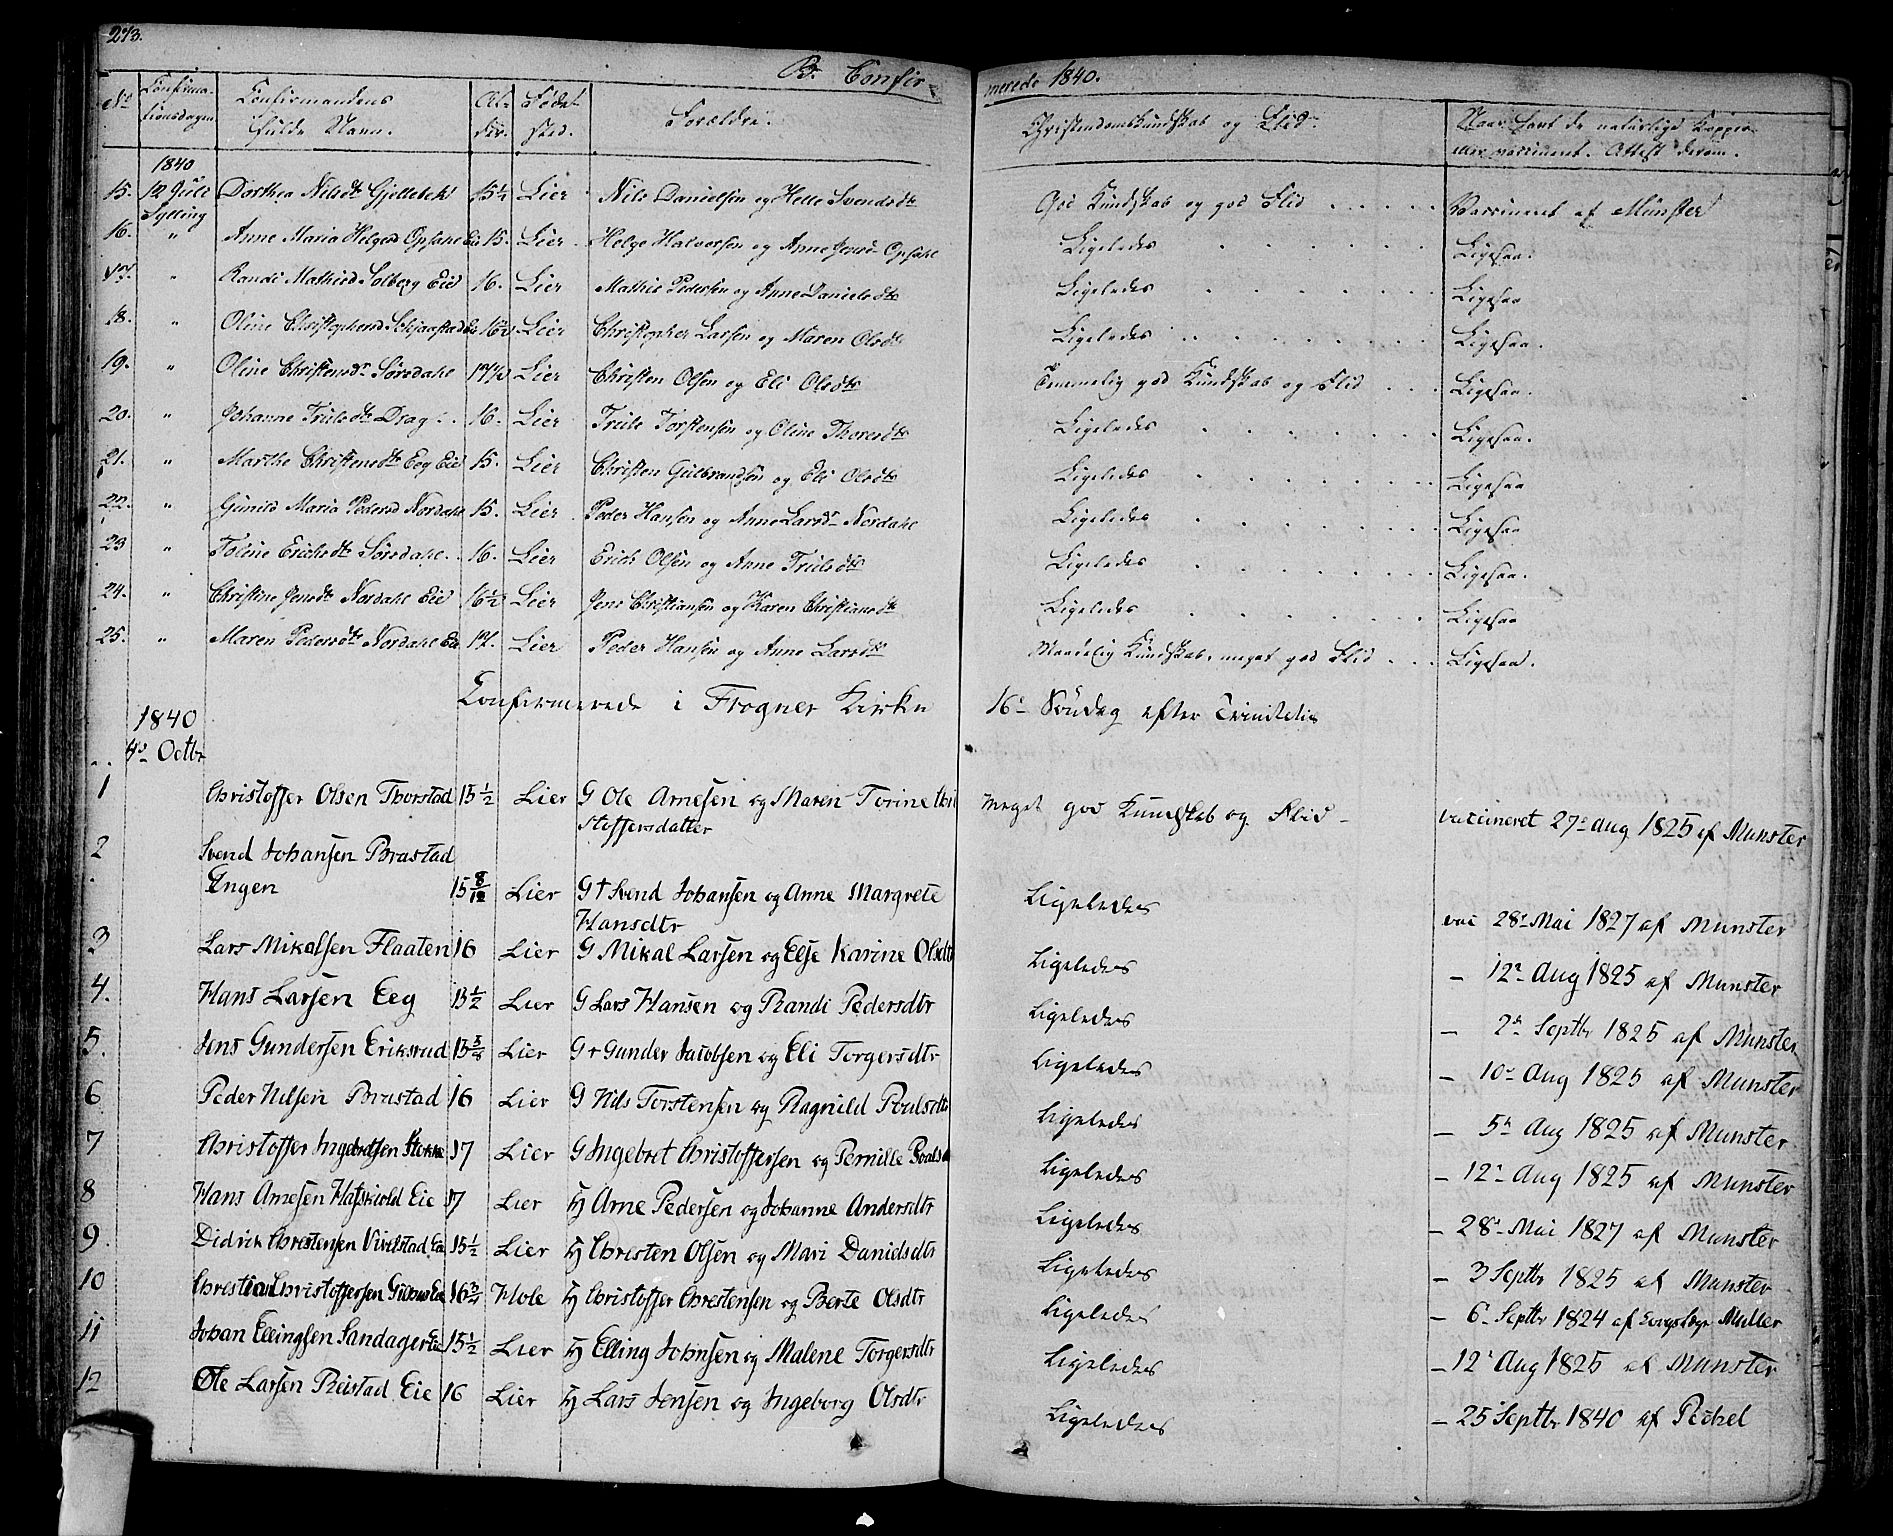 273.
B. Confir- merede 1840.
No Confirma- Confirmandens Al- Føde- Forældre. Christendomskundskab og Flid. Naar havt de naturlige Kopper
tionsdagen fulde Navn. der. sted. eller vaccineret. Attest derom.
1840
15. 12 Juli Dorthea Nilsdtr Gjellebek 15½ Lier Nils Danielsen og Helle Svendsdtr God Kundskab og god Flid . . . . . Vaccineret af Münster
Sylling
16. " Anne Maria Helgesd Opsahl Eie 15. Lier Helge Halvorsen og Anne Jensd Opsahl Ligeledes . . . . . Ligesaa.
17. " Randi Mathisd Solberg Eie 16. Lier Mathis Pedersen og Anne Danielsdtr Ligeledes . . . . . Ligesaa
18. " Oline Christophersd Lier Christopher Larsen og Maren Olsdtr Ligeledes . . . . . Ligesaa.
19. " Oline Christensdr Sørsdahl 17½ Lier Christen Olsen og Eli Olsdtr Temmelig god Kundskab og Flid . . . Ligesaa.
20. " Johanne Trulsdtr Drag . . 16. Lier Truls Torstensen og Oline Thoresdtr Ligeledes . . . . . Ligesaa.
21. " Marthe Christensdtr Eeg Eie 15. Lier Christen Gulbrandsen og Eli Olsdtr Ligeledes . . . . . Ligesaa
22. " Gunild Maria Pedersd Nordahl 15. Lier Peder Hansen og Anne Larsdr Nordahl Ligeledes . . . . . Ligesaa
23 " Toline Erichsdtr Sørsdahl . . 16. Lier Erich Olsen og Anne Trulsdtr Ligeledes . . . . . Ligesaa.
24. " Christine Jensdtr Nordahl Eie 16½ Lier Jens Christiansen og Karen Christiansdtr Ligeledes . . . . . Ligesaa
25. " Maren Pedersdtr Nordahl Eie 17. Lier Peder Hansen og Anne Larsdtr Maadelig Kundskab, meget god Flid . . . Ligesaa.
Confirmerede i Frogner Kirke 16de Søndag efter Trinitatis
1840
4de Octbr
1 Christoffer Olsen Thorstad 15½ Lier G Ole Arnesen og Maren Torine Chri Meget god Kundskab og Flid - vaccineret 27de Aug 1825 af Munster
stoffersdatter
2 Svend Johansen Brastad
Engen 15 8/12 Lier G + Svend Johansen og Anne Margrete Ligeledes vac 28de Mai 1827 af Munster
Hansdtr
3 Lars Mikalsen Flaaten 16 Lier G Mikal Larsen og Else Karine Olsdtr Ligeledes - 12te Aug 1825 af Munster
4. Hans Larsen Eeg 15½ Lier G Lars Hansen og Randi Pedersdtr Ligeledes - 2de Septbr 1825 af Munster
5. Jens Gundersen Eriksrud Lier G + Gunder Jacobsen og Eli Torgersdtr Ligeledes - 10de Aug 1825 af Munster
6 Peder Nilsen Brastad 16 Lier G Nils Torstensen og Ragnild Poulsdtr Ligeledes - 5te Aug 1825 af Munster
7 Christoffer Ingebretsen Stokke 17 Lier G Ingebret Christoffersen og Pernille Ligeledes - 12te Aug 1825 af Munster
8 Hans Arnesen Eie 17 Lier H Arne Pedersen og Johanne Andersdtr Ligeledes - 28de Mai 1827 af Munster
9. Didrik Christensen Eie 15½ Lier H Christen Olsen og Mari Danielsdtr Ligeledes - 3 Septbr 1825 af Munster
10 Christian Christoffersen 16¾ Hole H Christoffer Chrestensen og Berte Olsdtr Ligeledes - 6te Septbr 1824 af Muller
11 Johan Ellingsen Sandager Eie 15½ Lier H Elling Johnsen og Malene Torgersdtr Ligeledes - 12te Aug 1825 af Munster
12 Ole Larsen Reistad Eie 16 Lier H Lars Jensen og Ingeborg Olsdtr Ligeledes - 25 Septbr 1840 af Peckel